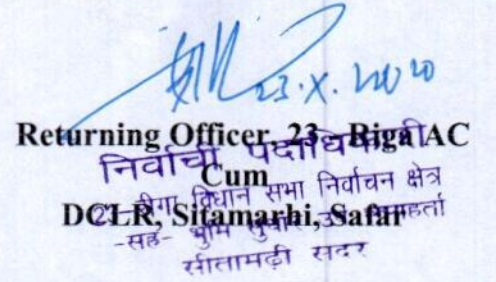 23.X.2020
Returning Officer, 23- Riga AC
Cum
DCLR, Sitamarhi, Safar
निर्वाची पदाधिकारी
23-रीगा विधान सभा निर्वाचन क्षेत्र
-सह- भूमि सुधार उप समाहर्ता
सीतामढ़ी सदर